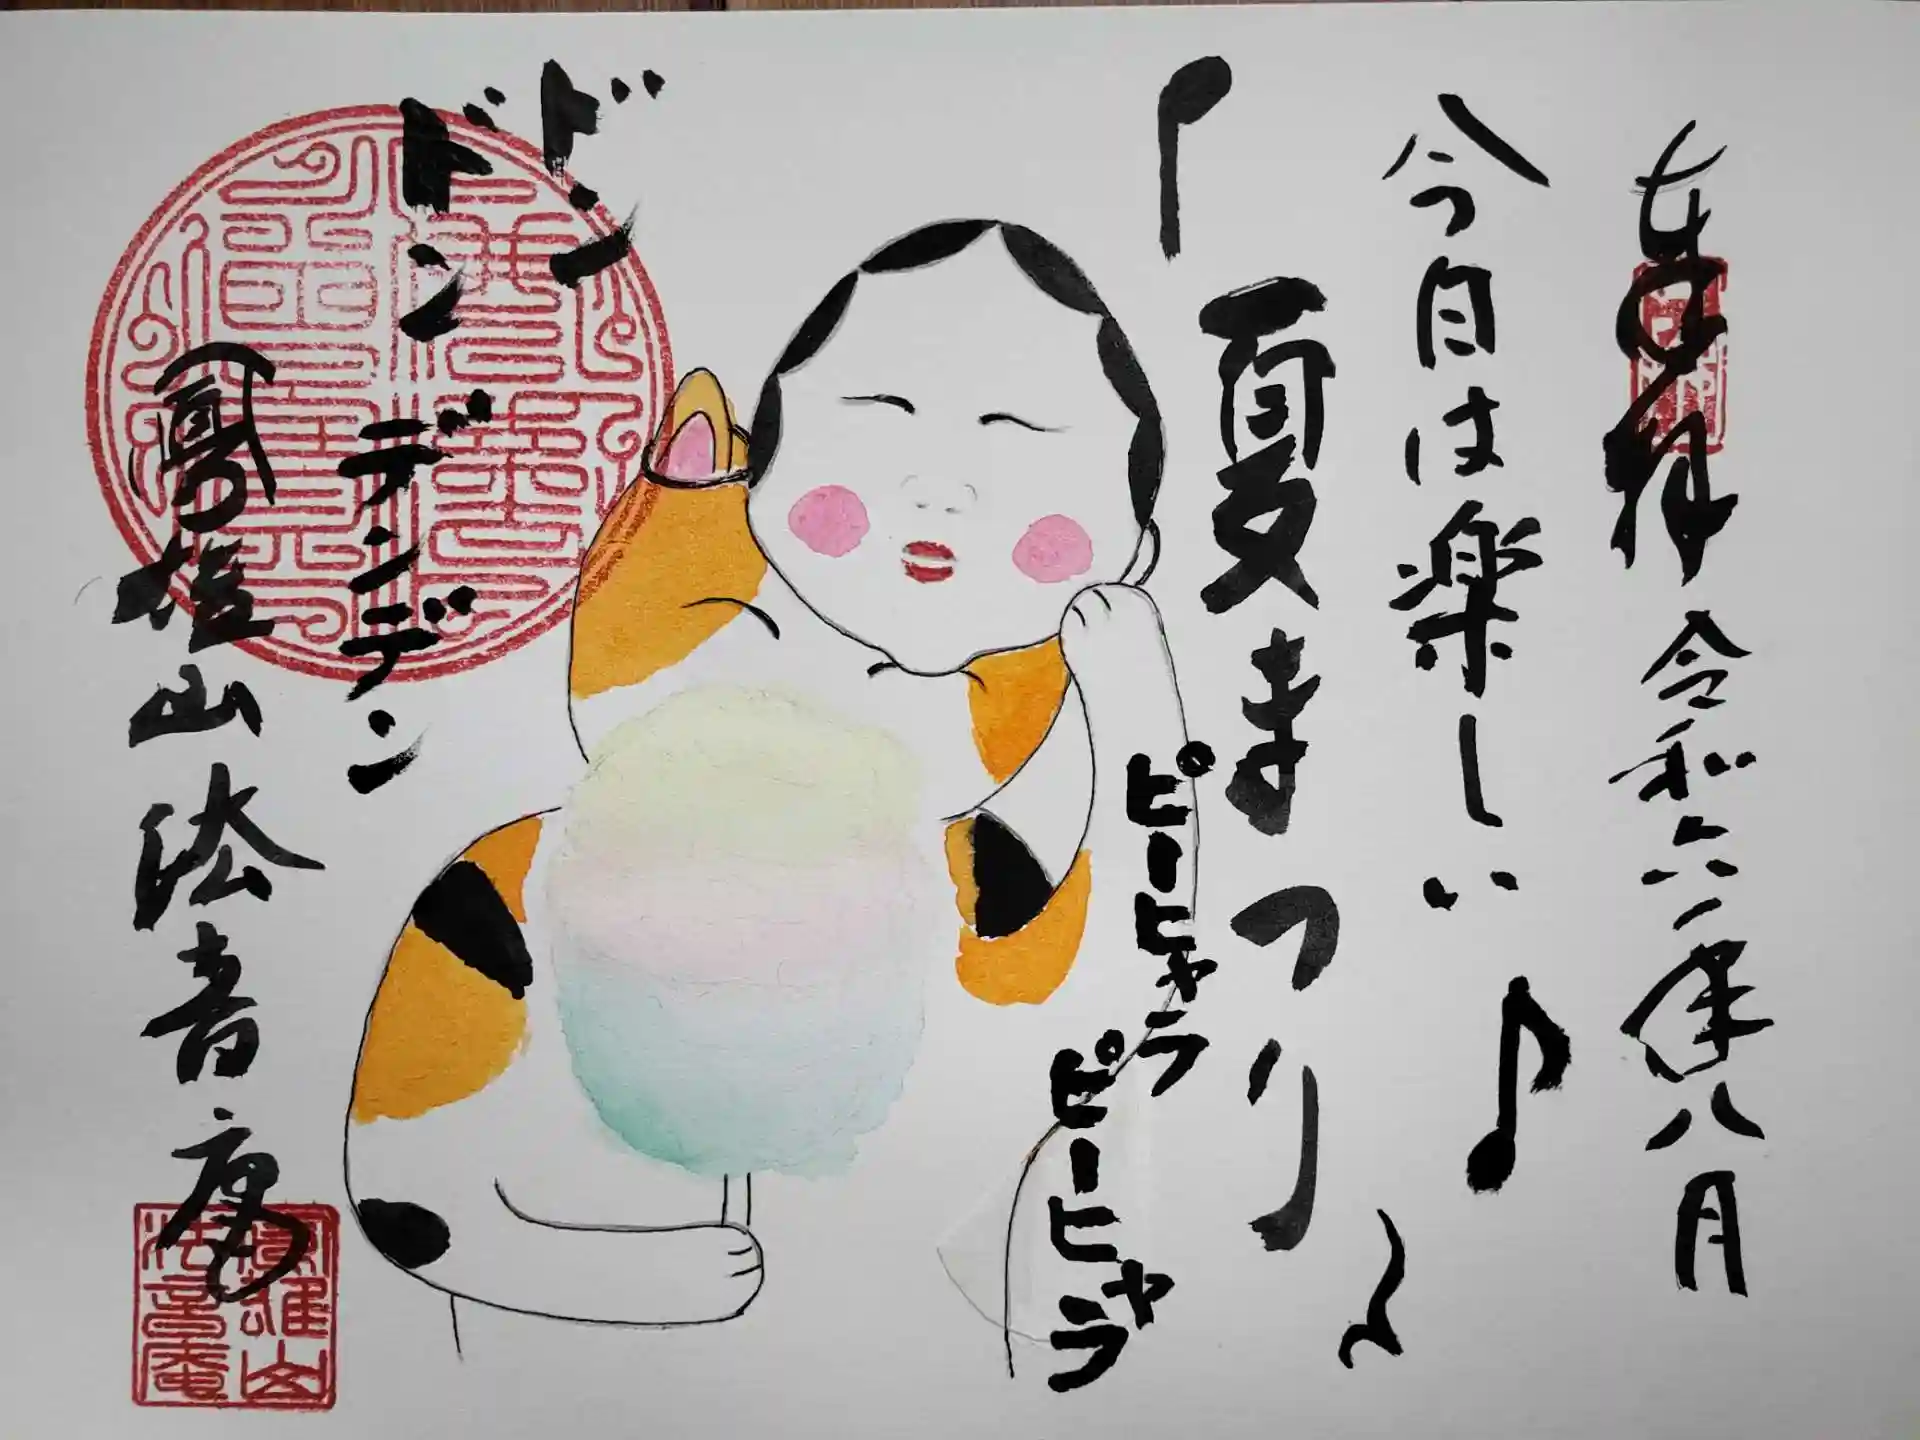 奉拝 令和六年八月
今日は楽しい
夏まつり
ピーヒャラ
ピーヒャラ
ドンドン
デンデン
鳳雄山 法音庵
鳳雄山
法音庵